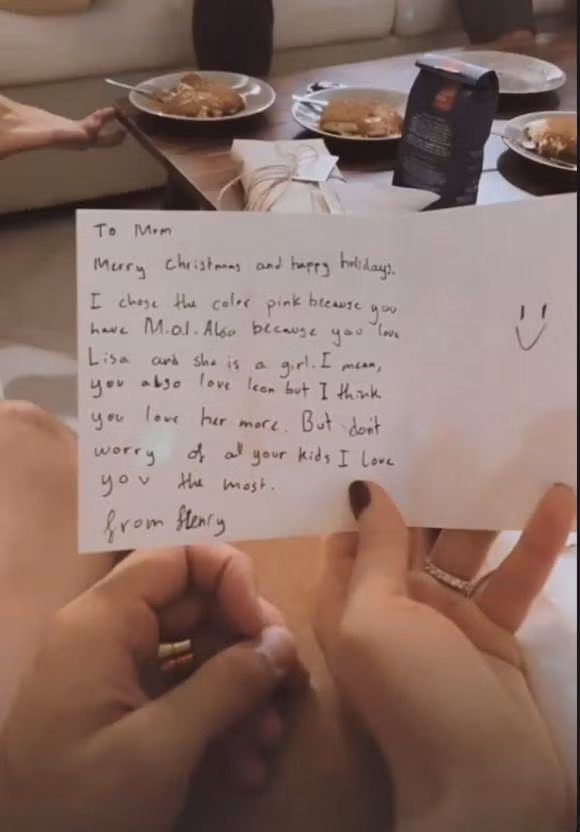 To Mom
Merry Christmas and happy holidays.
I chose the color pink because you
have M.o.l. Also because you love
Lisa and she is a girl. I mean,
you also love leon but I think
you love her more. But don't
worry of all your kids I love
you the most.
from Henry